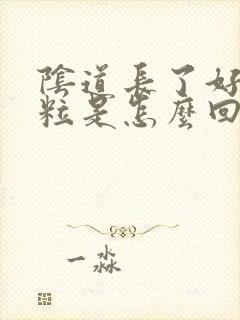 陰道長了好
粒是怎麼回
一淼